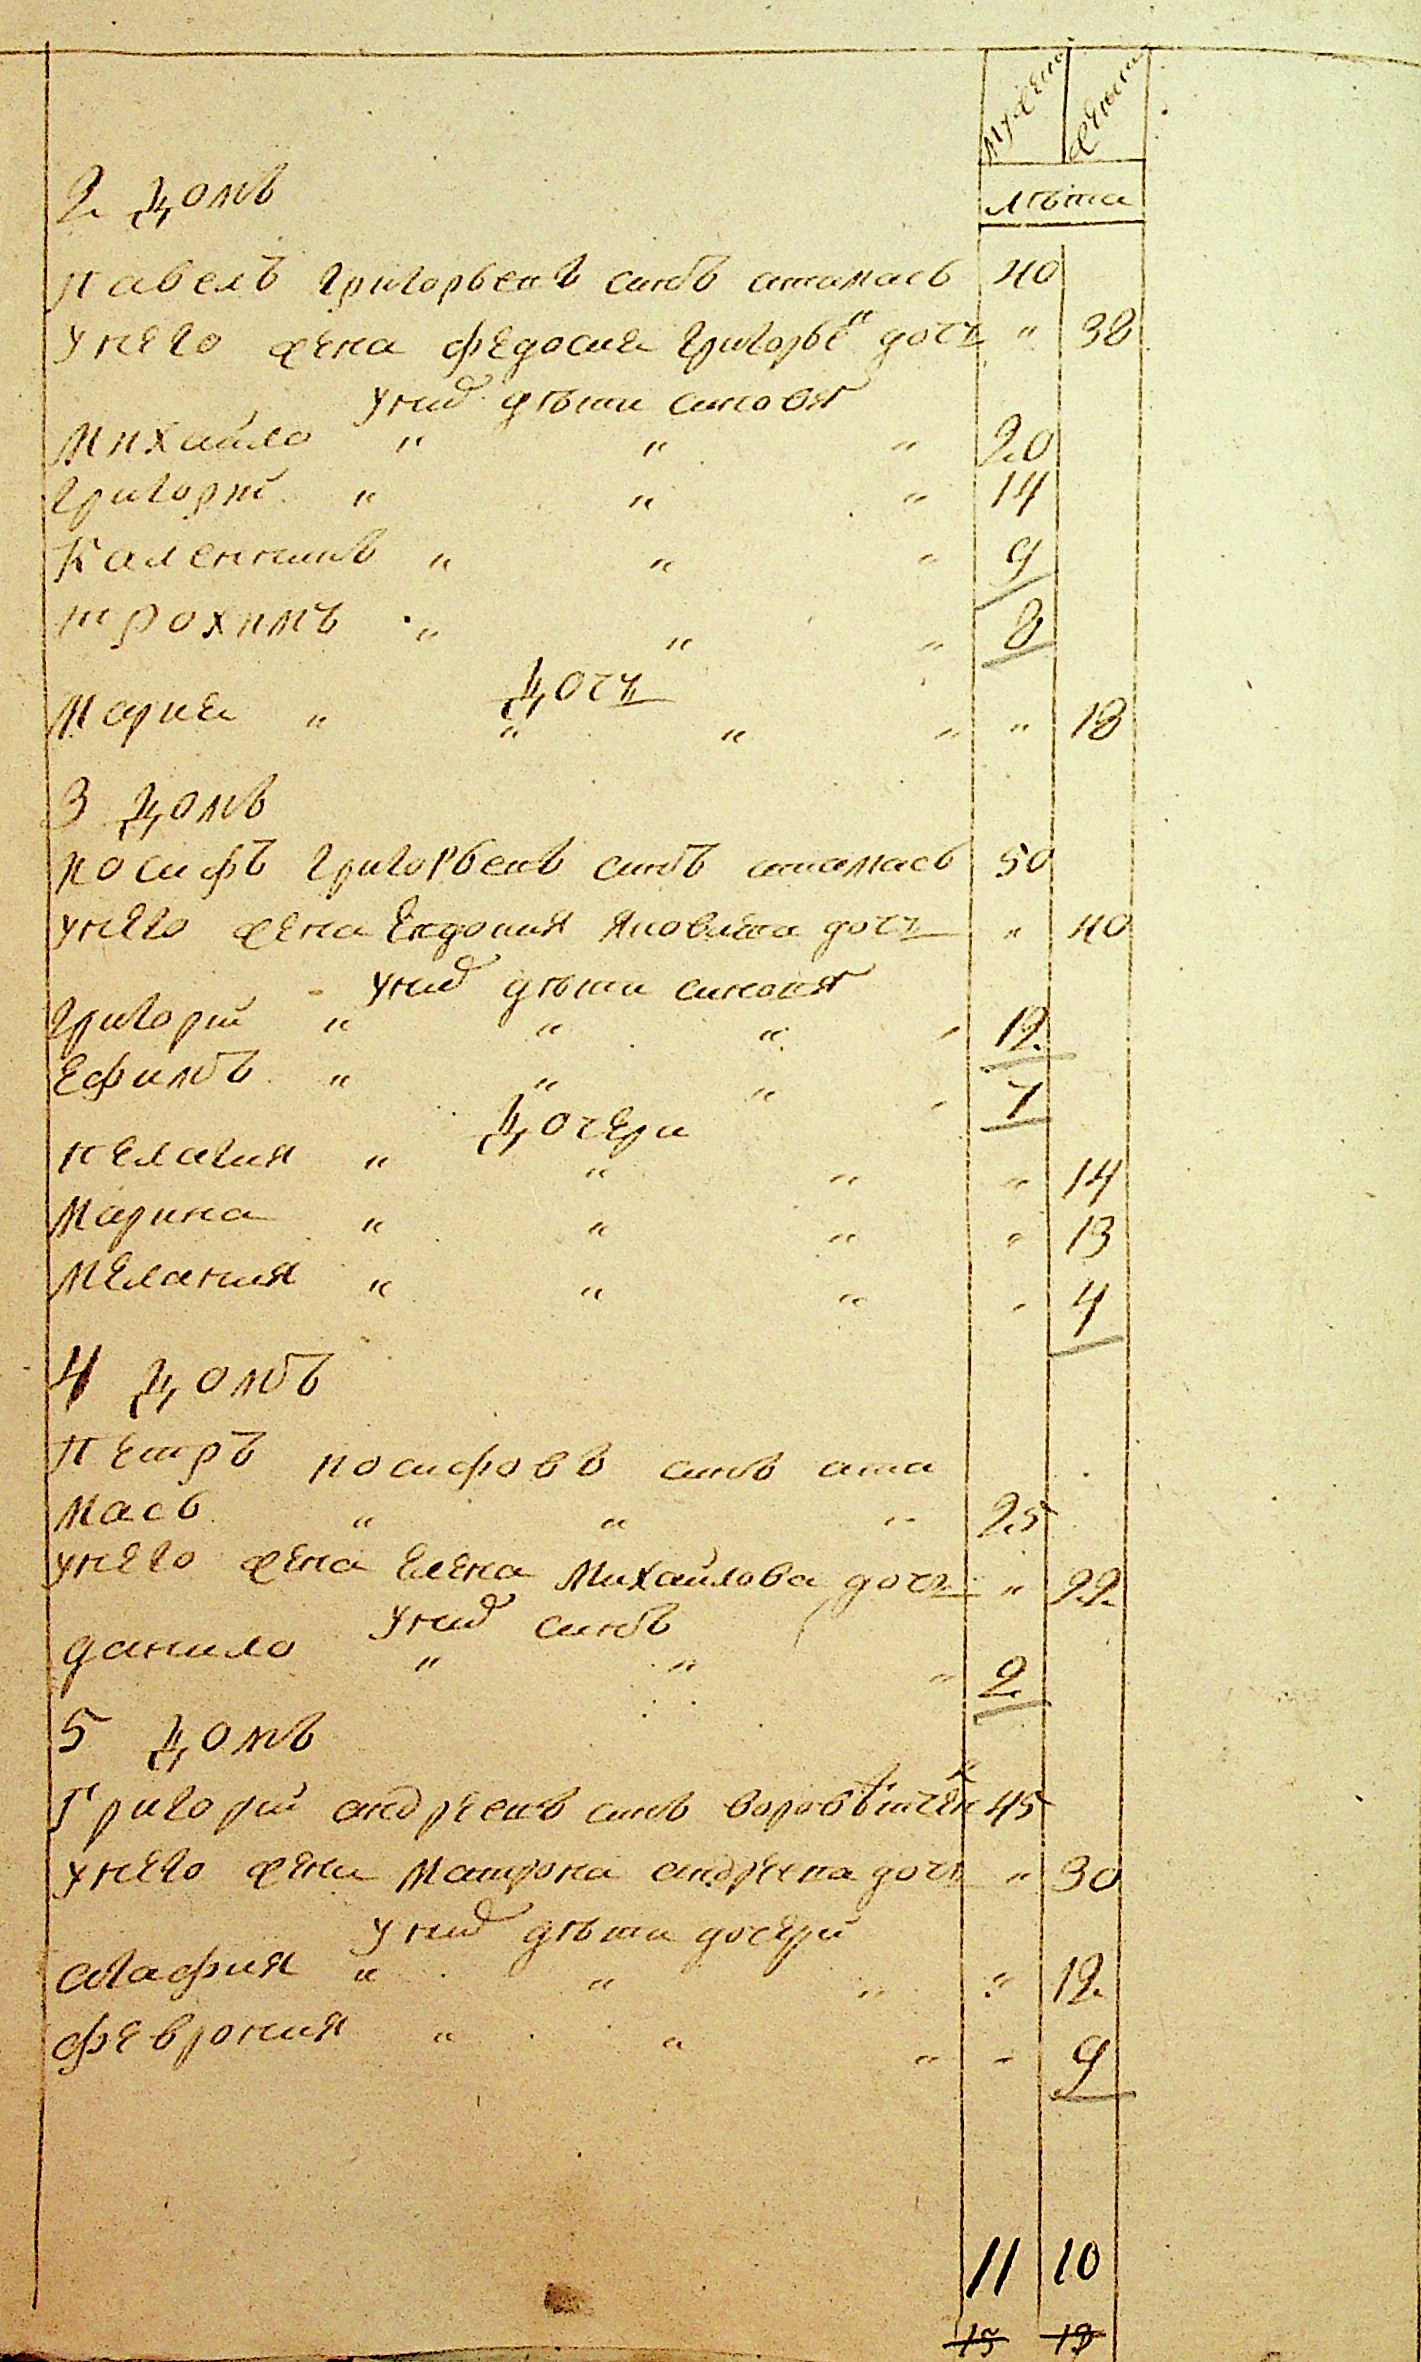 Мужеска Женска
лѣта
2 Домъ
павелъ григорьевъ синъ атамась 40
у него жена федосия григорье дочь " 38
у них дѣти синовя
Михайло " " " 20
григорій " " " 14
Каленникъ " " " 9
трохимъ " " " 8
Дочь
Мария " " " " " 18
3 Домъ
иосифъ григорьевъ синъ атамась 50
у него жена Евдокия яковлева дочь " 40
у них дѣти синовя
григорій " " " " 12
Ефимъ " " " " 7
Дочери
пелагия " " " " 14
Марина " " " " 13
Мелания " " " " 4
4 Домъ
петръ иосифовъ синъ ата
мась " " " 25
у него жена Елена Михайлова дочь " 22
у них синъ
данило " " " 2
5 Домъ
Григорій андреевъ синъ 45
у него жена Матрона андреева дочь " 30
у них дѣти дочери
агафия " " " " 12
феврония " " " " 9
11 10
15 12